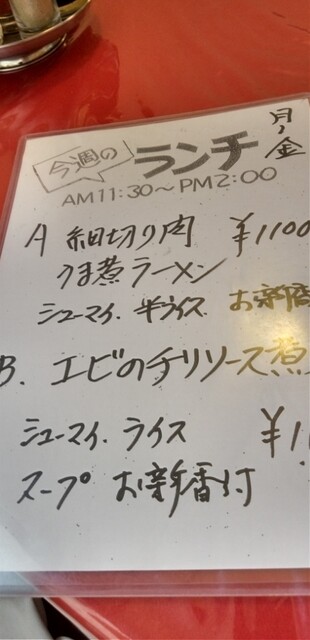 今週の ランチ 月〜金
AM11:30〜PM2:00
A 細切り肉 ¥1100
うま煮ラーメン
シューマイ. 半ライス. お新香
B. エビのチリソース煮
シューマイ. ライス ¥1,
スープ お新香付